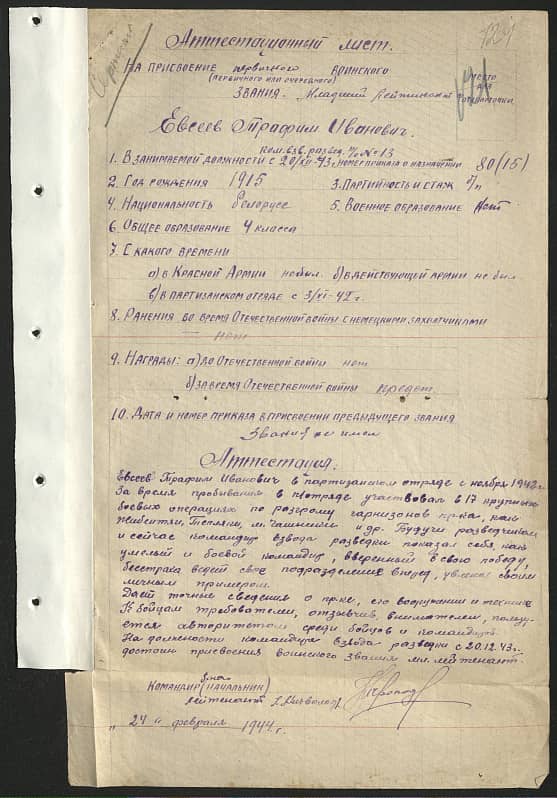 124
Аттестационный лист.
на присвоение первичного воинского
(первичного или очередного)
звания. Младший лейтенант
место для фотокарточки
Евсеев Трафим Иванович.
ком. взв. развед. п/о №13
1. В занимаемой должности с 20/XII-43г. номер приказа о назначении 80(15)
2. Год рождения 1915 3. Партийность и стаж б/п
4. Национальность белорусс 5. Военное образование нет
6. Общее образование 4 класса
7. С какого времени
а) в Красной Армии не был б) в действующей армии не был
в) в партизанском отряде с 3/XI-42г.
8. Ранения во время Отечественной войны с немецкими захватчиками
нет
9. Награды: а) до Отечественной войны нет
б) за время Отечественной войны
10. Дата и номер приказа в присвоении предыдущего звания
звания не имел
Аттестация.
Евсеев Трафим Иванович в партизанском отряде с ноября 1942г.
За время пребывания в п/отряде участвовал в 17 крупных
боевых операциях по разгрому гарнизонов пр-ка, как
Тепляки, м. Чашники и др. Будучи разведчиком
и сейчас командир взвода разведки показал себя, как
умелый и боевой командир, уверенный в свою победу,
бесстрашно ведет свое подразделение вперед, увлекая своим
личным примером.
Дает точные сведения о пр-ке, его вооружении и технике
К бойцам требователен, отзывчив, внимателен, пользу-
ется авторитетом среди бойцов и командиров.
На должности командира взвода разведки с 20.12.43г.
достоин присвоения воинского звания мл. лейтенант.
Командир (начальник)
лейтенант
„24" февраля 1944г.